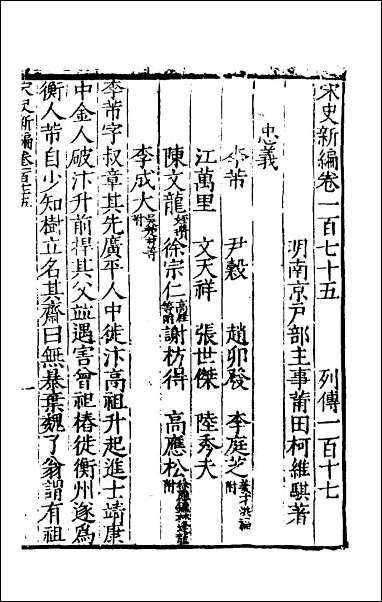 宋史新編卷一百七十五 列傳一百十七
明南京戸部主事莆田柯維騏著
忠義
李芾 尹穀 趙卯發 李庭芝姜才洪福附
江萬里 文天祥 張世傑 陸秀夫
陳文龍 徐宗仁 謝枋得 高應松附
李成大附
李芾字叔章其先廣平人中徙汴高祖升起進士靖康
中金人破汴升前捍其父並遇害曾祖椿徙衡州遂為
衡人芾自少知樹立名其齋曰無暴棄魏了翁謂有祖
宋史新編卷百七十五 一